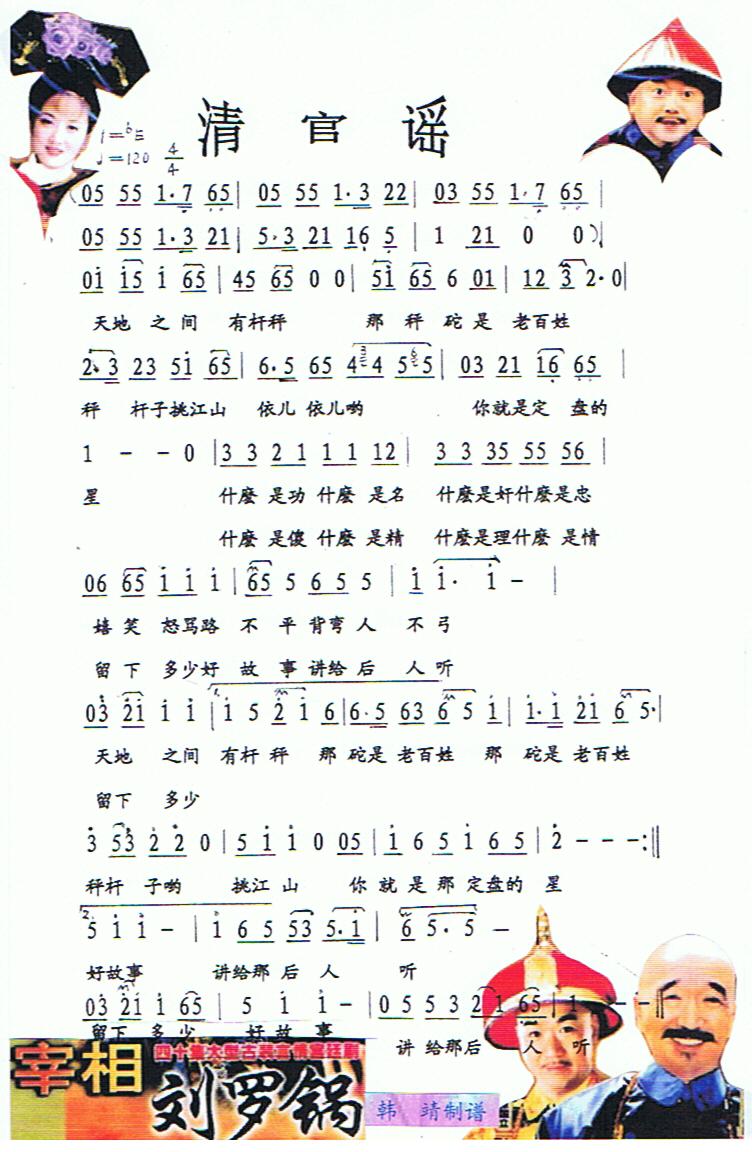 清官谣
1=♭E
♩=120 4/4
(05 55 1·7 65 | 05 55 1·3 22 | 03 55 1·7 65 |
05 55 1·3 21 | 5·3 21 16 5 | 1 21 0 0) |
01 15 1 65 | 45 65 0 0 | 51 65 6 01 | 12 3 2·0 |
天地 之 间 有杆秤 那 秤 砣 是 老百姓
2·3 23 51 65 | 6·5 65 4 4 5 5 | 03 21 16 65 |
秤 杆子挑江山 依儿 依儿哟 你就是定 盘的
1 - - 0 | 3 3 2 1 1 1 12 | 3 3 35 55 56 |
星 什麽 是功 什麽 是名 什麽是奸什麽是忠
什麽 是傻 什麽 是精 什麽是理什麽 是情
06 65 1 1 1 | 65 5 6 5 5 | 1 1· 1 - |
嬉 笑 怒骂路 不 平 背弯 人 不 弓
留 下 多少好 故 事 讲给 后 人 听
03 21 1 1 | 1. 1 5 2 1 6 | 6·5 63 6 5 1 | 1·1 21 6 5· |
天地 之间 有杆 秤 那 砣是 老百姓 那 砣是 老百姓
留下 多少
3 53 2 2 0 | 5 1 1 0 05 | 1 6 5 1 6 5 | 2 - - - :‖
秤杆 子哟 挑江 山 你 就 是 那 定盘的 星
2. 5 1 1 - | 1 6 5 53 5·1 | 6 5· 5 -
好故事 讲给那 后 人 听
03 21 1 65 | 5 1 1 - | 0 5 5 3 2 1 65 | 1 - - ‖
留下 多 少 好 故 事 讲 给那后 人 听
宰相
四十集大型古装言情宫廷剧
刘罗锅
韩 靖制谱